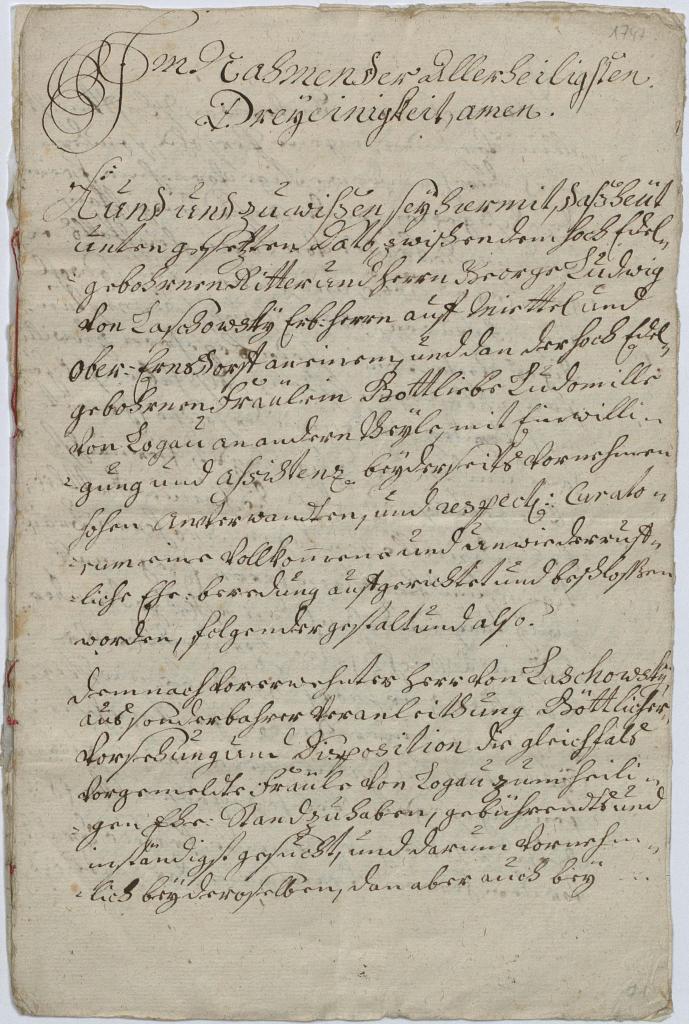 1747
Im Nahmen der Allerheiligsten
Dreyeinigkeit, amen.
Kund und zu wißen sey hiermit, daß heut
unten gesetzten Dato, zwischen dem Hoch Edel-
gebohrnen Ritter und Herrn George Ludwig
von Laschowsky Erb-Herrn auf und
Ober-Ernsdorff an einem, und dan der Hoch Edel-
gebohrnen Fräulein Gottliebe Ludomille
von Logau an andern Theyle, mit Einwilli-
gung und Assistenz beyderseits Vornehmen
hohen Anverwandten, und respect: Curato-
rum eine Vollkommene und unwiederruf-
liche Ehe-beredung aufgerichtet und beschlossen
worden, folgender gestalt und also.
Demnach vorerwehnter Herr von Laschowsky
aus sonderbahrer Veranleithung Göttlicher
Vorsehung und Disposition die gleichfals
vorgemeldte Fräule von Logau zum heili-
gen Ehe-Stand zu haben, gebührendts und
inständigst gesucht, und darum vornehm-
lich bey deroselben, dan aber auch bey